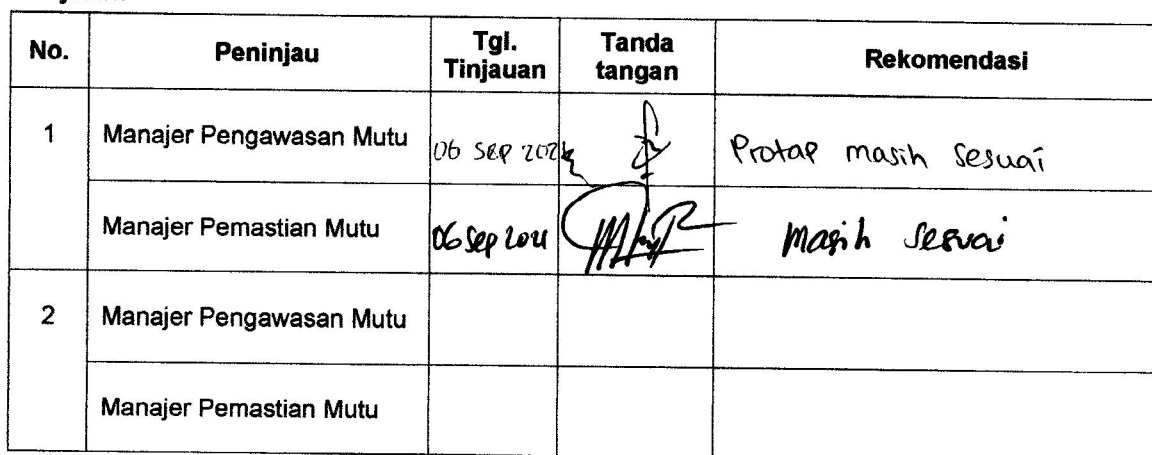 No. Peninjau Tgl. Tinjauan Tanda tangan Rekomendasi
1 Manajer Pengawasan Mutu 06 Sep Protap masih sesuai
Manajer Pemastian Mutu 06 Sep masih sesuai
2 Manajer Pengawasan Mutu
Manajer Pemastian Mutu